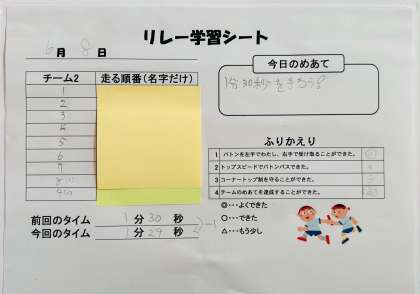 リレー学習シート
6月 8日
今日のめあて
1分30秒をきろう!
チーム2 走る順番(名字だけ)
1
2
3
4
5
6
7
ふりかえり
1 バトンを左手でわたし、右手で受け取ることができた。
2 トップスピードでバトンパスできた。
3 コーナートップ制を守ることができた。
4 チームのめあてを達成することができた。
◎・・・よくできた
○・・・できた
△・・・もう少し
前回のタイム 1分30秒
今回のタイム 1分29秒